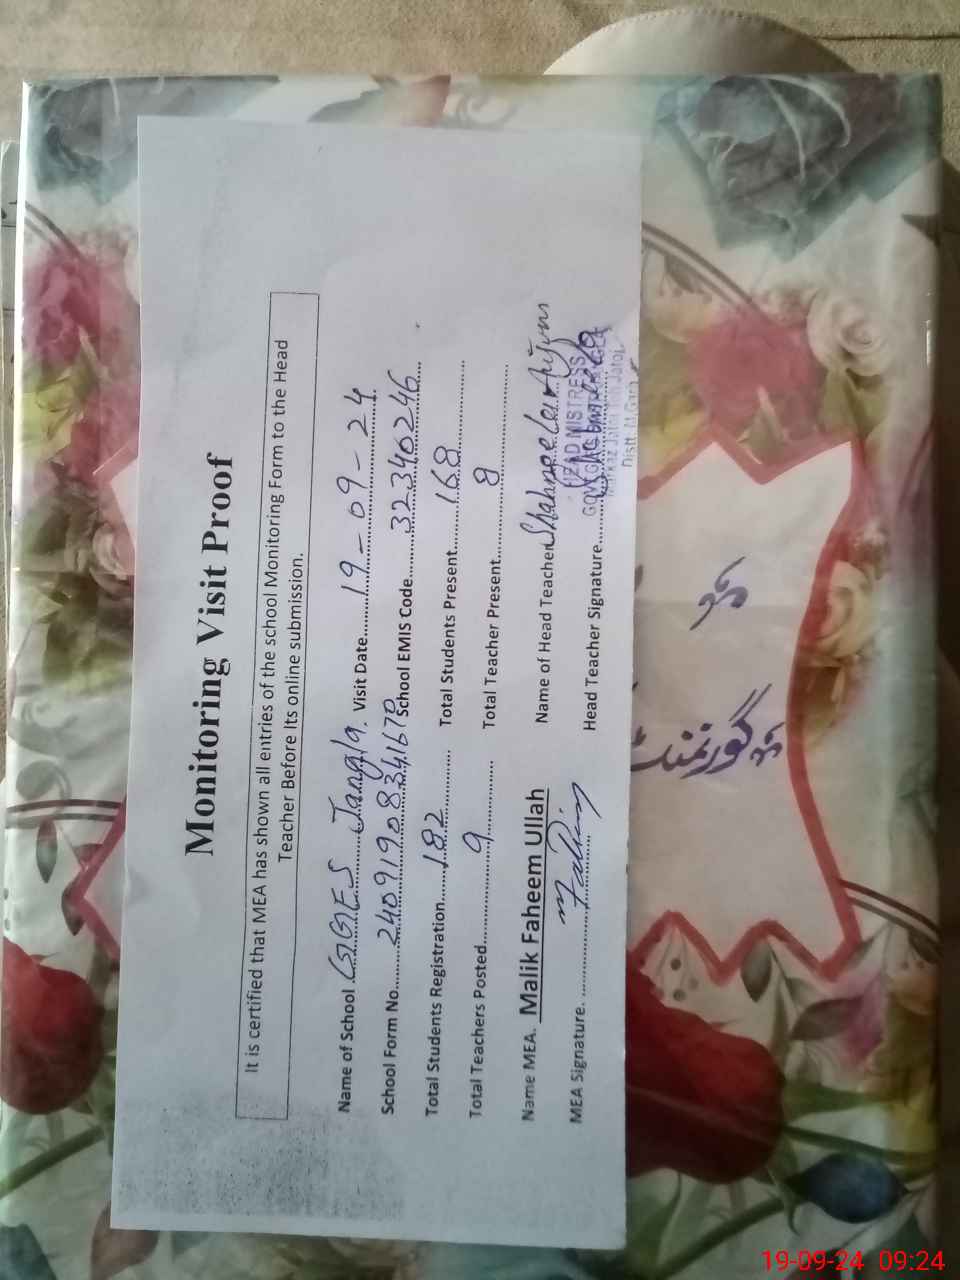 Monitoring Visit Proof
It is certified that MEA has shown all entries of the school Monitoring Form to the Head
Teacher Before its online submission.
Name of School GGES Jangla. Visit Date 19-09-24
School Form No. School EMIS Code 32340246
Total Students Registration 182 Total Students Present 168
Total Teachers Posted 9 Total Teacher Present 8
Name MEA. Malik Faheem Ullah Name of Head Teacher Shahneela Anjum
MEA Signature. Head Teacher Signature
HEAD MISTRESS
Distt. M.Garh
گورنمنٹ
19-09-24 09:24